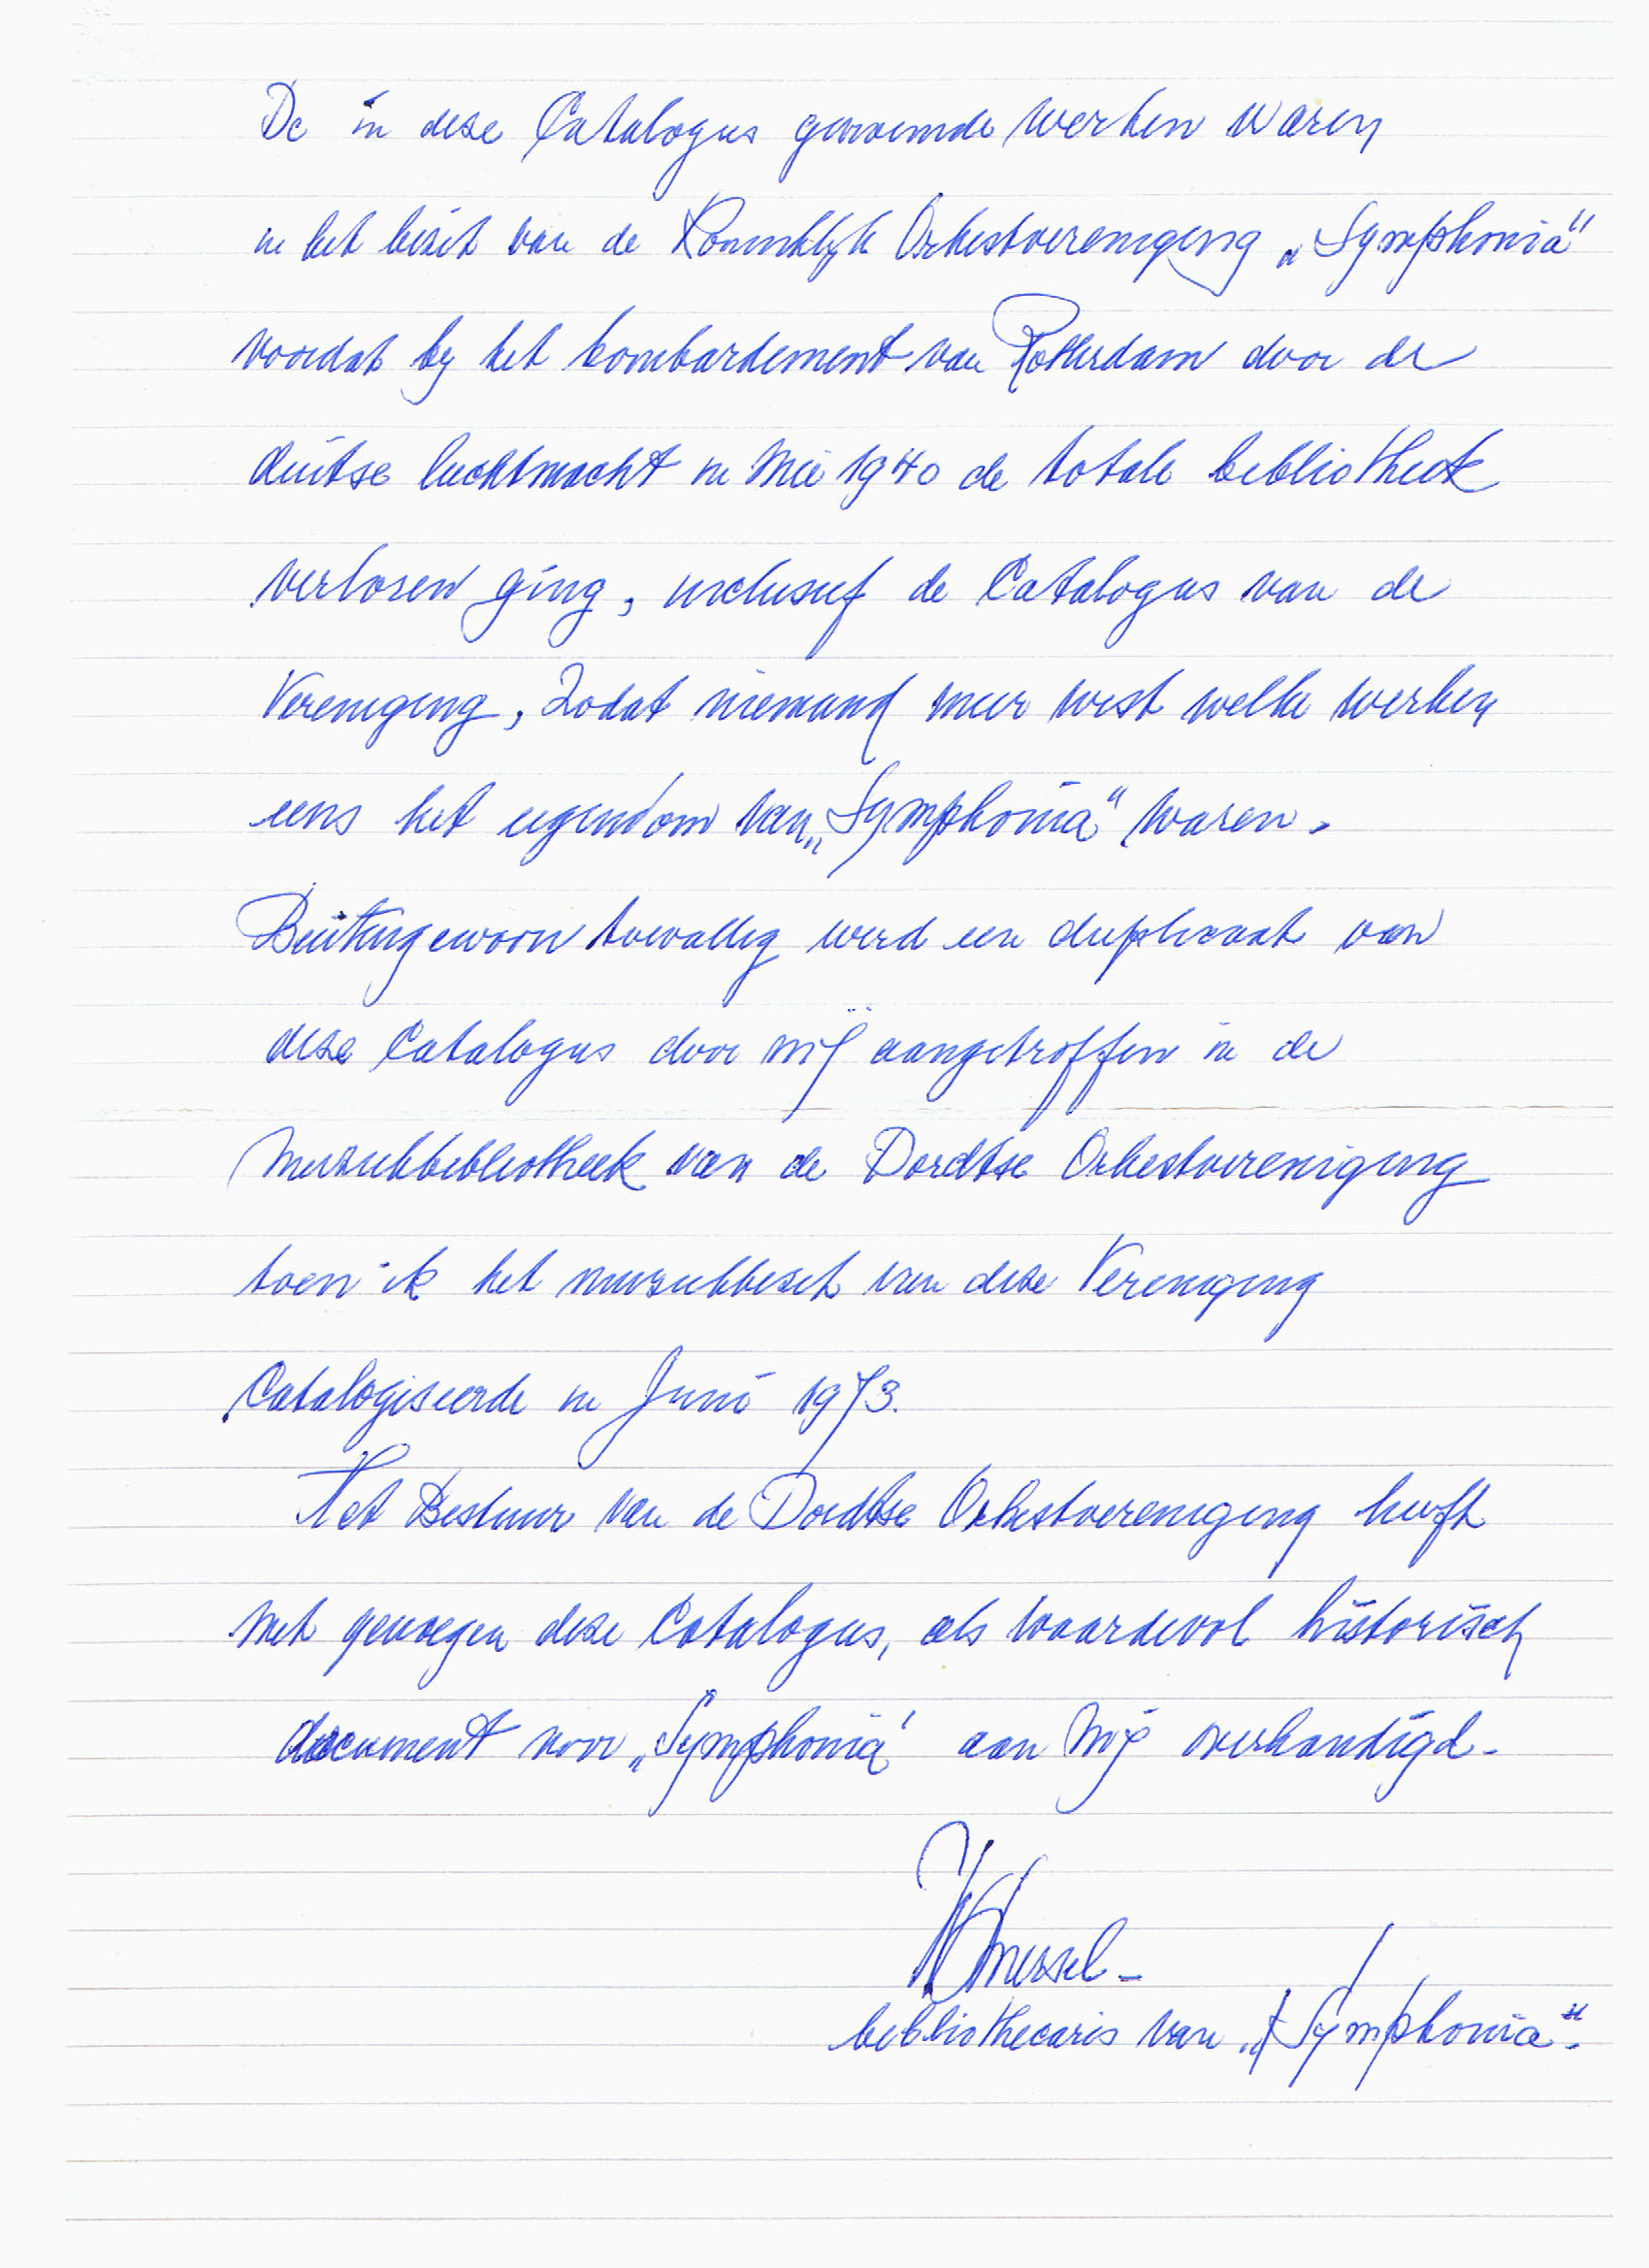 De in deze Catalogus genoemde werken waren
in het bezit van de Koninklijk Orkestvereniging „Symphonia"
voordat bij het bombardement van Rotterdam door de
duitse luchtmacht in Mei 1940 de totale bibliotheek
verloren ging, inclusief de Catalogus van de
Vereniging, zodat niemand meer wist welke werken
eens het eigendom van „Symphonia" waren.
Buitengewoon toevallig werd een duplicaat van
deze Catalogus door mij aangetroffen in de
muziekbibliotheek van de Dordtse Orkestvereniging
toen ik het muziekbezit van deze Vereniging
Catalogiseerde in Juni 1973.
Het Bestuur van de Dordtse Orkestvereniging heeft
met genoegen deze Catalogus, als waardevol historisch
document voor „Symphonia" aan mij overhandigd.
bibliothecaris van „Symphonia".